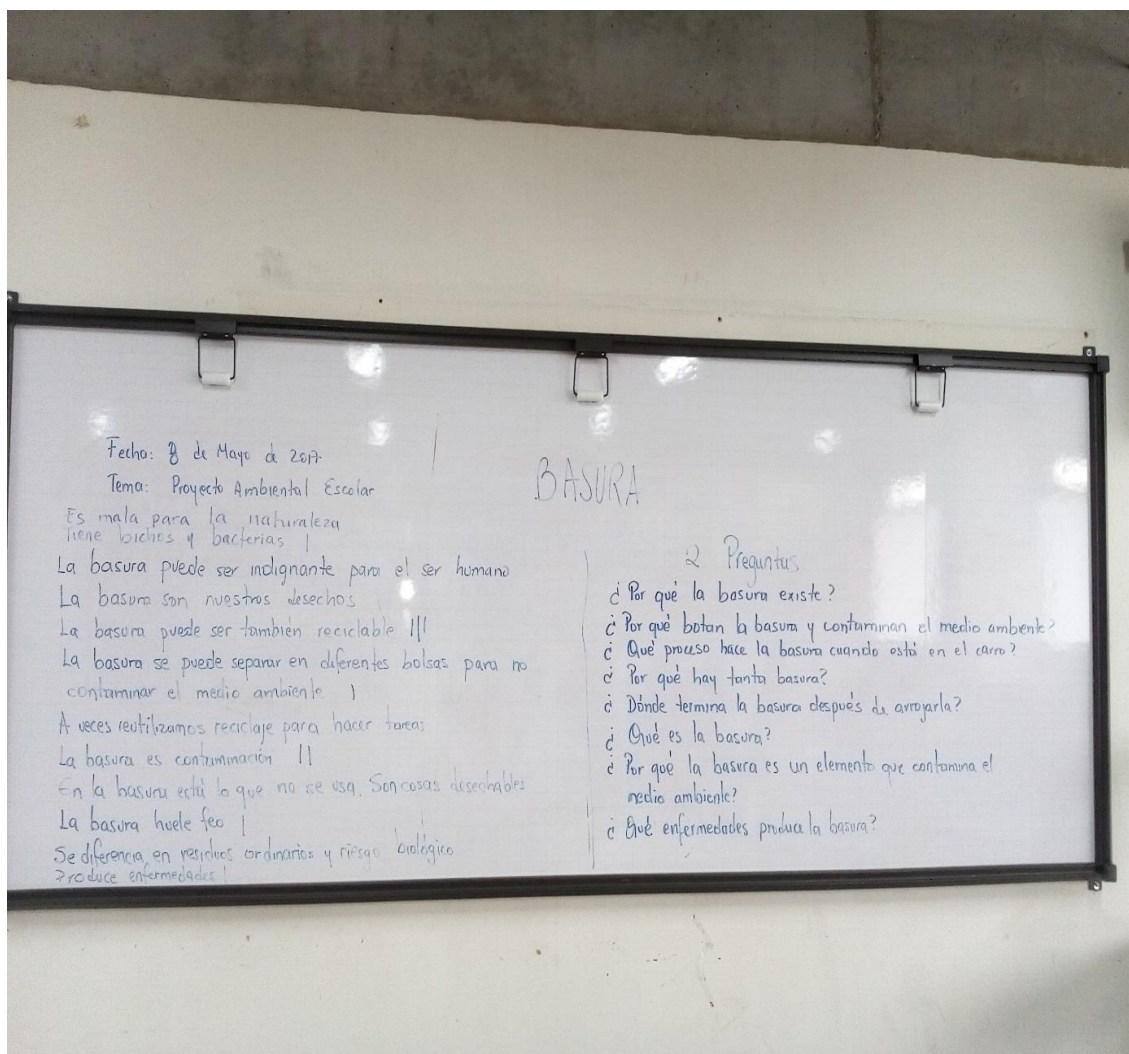 Fecha: 8 de Mayo de 2017.
Tema: Proyecto Ambiental Escolar
BASURA
Es mala para la naturaleza
Tiene bichos y bacterias |
La basura puede ser indignante para el ser humano
La basura son nuestros desechos
La basura puede ser también reciclable |||
La basura se puede separar en diferentes bolsas para no
contaminar el medio ambiente |
A veces reutilizamos reciclaje para hacer tareas
La basura es contaminación ||
En la basura está lo que no se usa. Son cosas desechables
La basura huele feo |
Se diferencia en residuos ordinarios y riesgo biológico
Produce enfermedades |
2 Preguntas
¿Por qué la basura existe?
¿Por qué botan la basura y contaminan el medio ambiente?
¿Qué proceso hace la basura cuando está en el carro?
¿Por qué hay tanta basura?
¿Dónde termina la basura después de arrojarla?
¿Qué es la basura?
¿Por qué la basura es un elemento que contamina el
medio ambiente?
¿Qué enfermedades produce la basura?